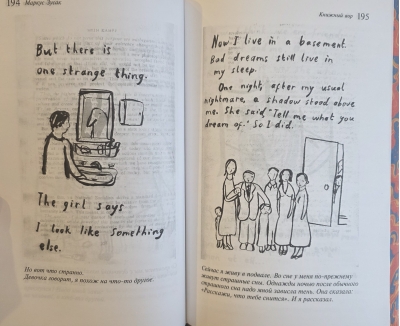 194 Маркус Зузак
But there is
one strange thing.
The girl says
I look like something
else.
Но вот что странно.
Девочка говорит, я похож на что-то другое.
Книжный вор 195
Now I live in a basement.
Bad dreams still live in
my sleep.
One night, after my usual
nightmare, a shadow stood above
me. She said "Tell me what you
dream of." So I did.
Сейчас я живу в подвале. Во сне у меня по-прежнему
живут страшные сны. Однажды ночью после обычного
страшного сна надо мной встала тень. Она сказала:
«Расскажи, что тебе снится». И я рассказал.